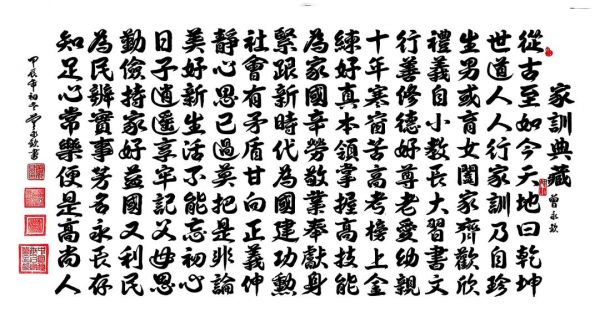 家訓典藏
曾永欽
從古至如今天地曰乾坤
世道人人行家訓乃自珍
生男或育女闔家齊歡欣
禮義自小教長大習書文
行善修德好尊老愛幼親
十年寒窗苦高考榜上金
練好真本領掌握高技能
為家國辛勞敬業奉獻身
緊跟新時代為國建功勲
社會有矛盾甘向正義伸
靜心思己過莫把是非論
美好新生活不能忘初心
日子逍遥享牢記父母恩
勤儉持家好益國又利民
為民辦實事芳名永長存
知足心常樂便是高尚人
甲辰年初冬曾永欽書